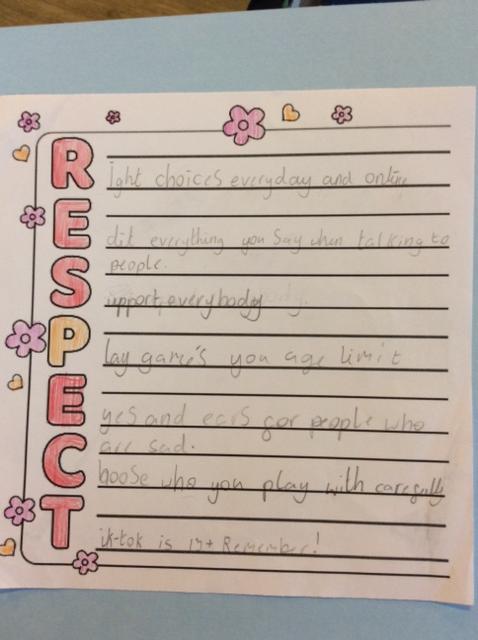 Right choices everyday and online
Edit everything you say when talking to
people.
Support, everybody
Play game's you age limit
Eyes and ears for people who
are sad.
Choose who you play with carefully
Tik-tok is 13+ Remember!